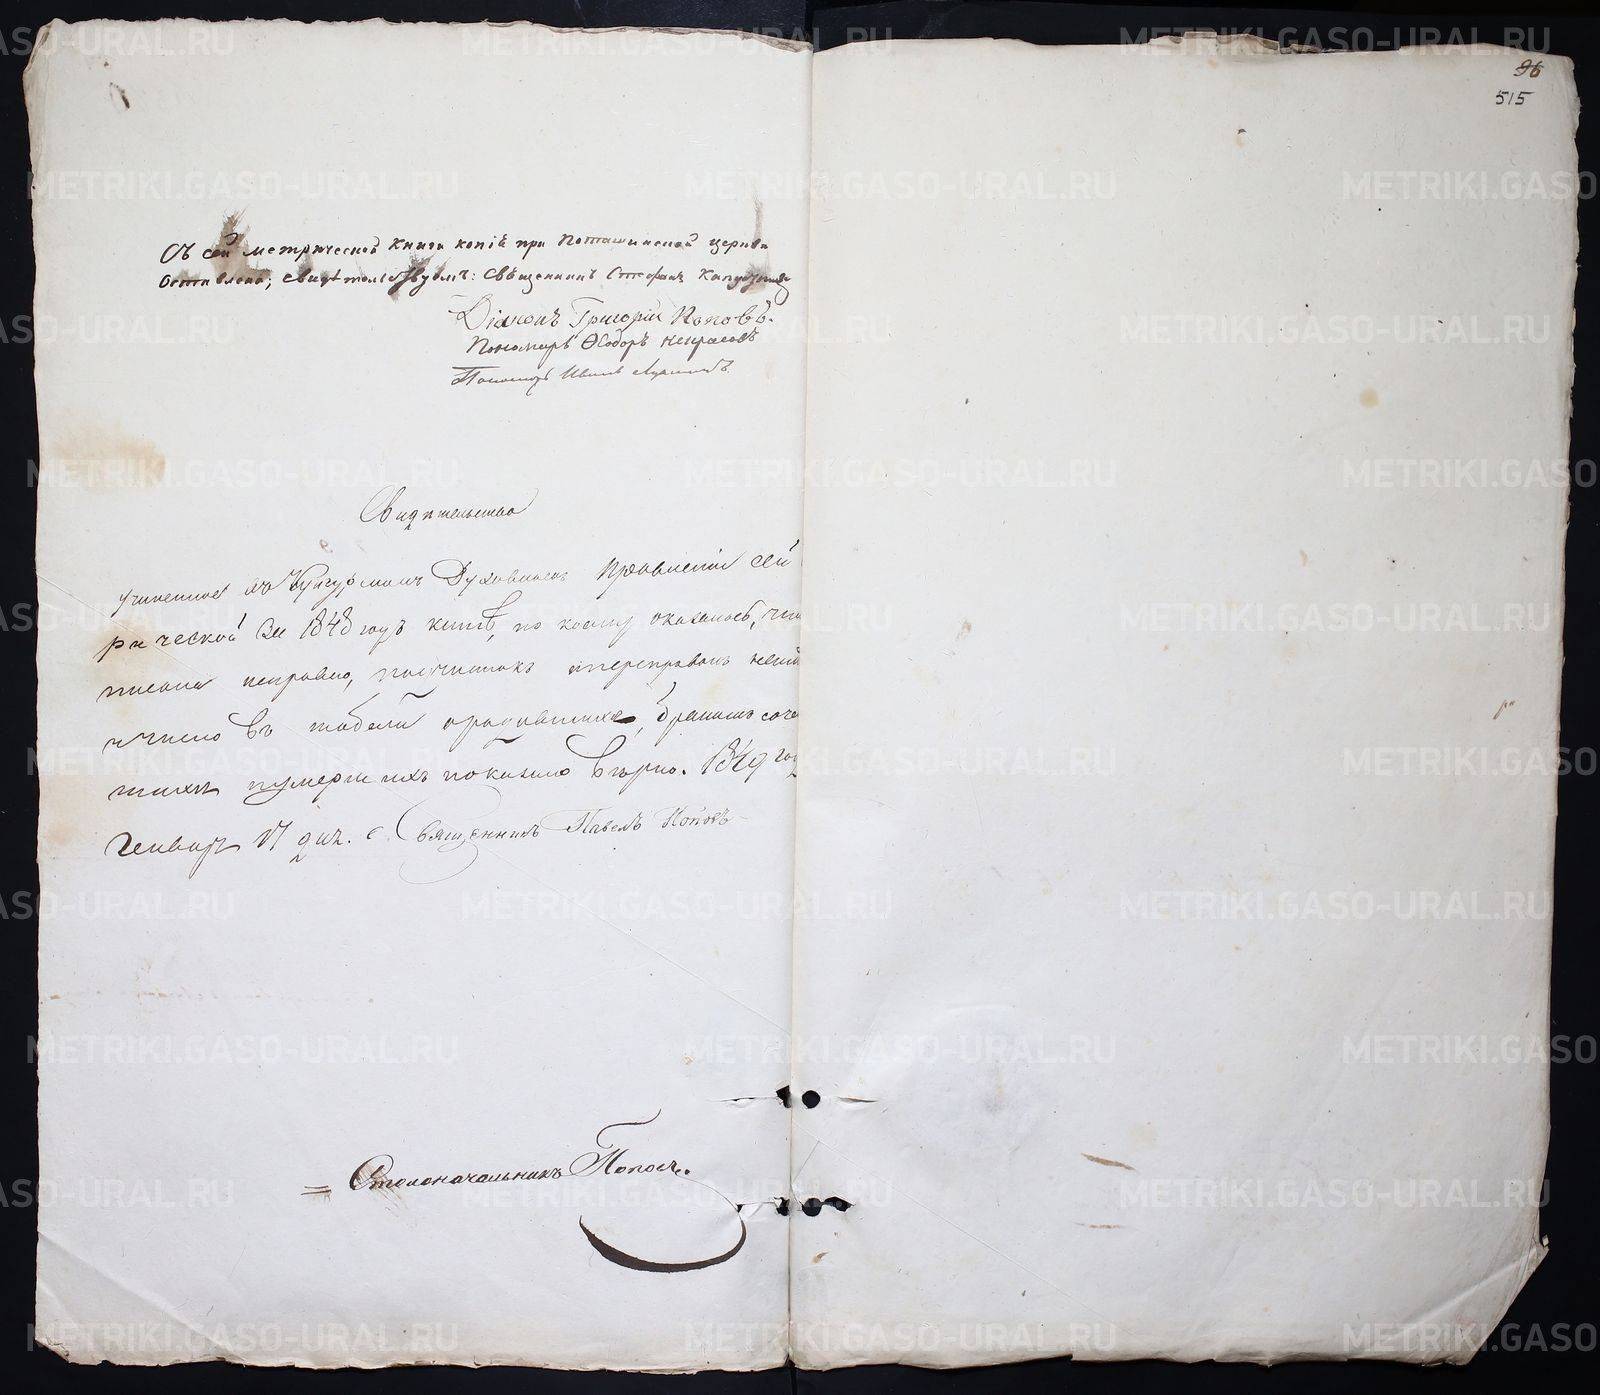 96
515
Съ сей метрической книги копіѣ при Поташинской церкви
Оставлена; свидѣтельствуемъ: Священникъ Стефанъ Капустинъ
Діаконъ Григорій Поповъ.
Пономарь Ѳеодоръ Некрасовъ
Пономарь Иванъ
Свидѣтельство
учиненное въ Кунгурскомъ Духовномъ Правленіи сей
рической за 1848 годъ книгѣ, по коему оказалось, что
писана исправно, подчистокъ и переправокъ неим
и число въ табели о родившихся, бракомъ соче
шихся и умершихъ показано вѣрно. 1849 год
Генваря 17 дня. Священникъ Павелъ Поповъ
Столоначальникъ Поповъ.
METRIKI.GASO-URAL.RU